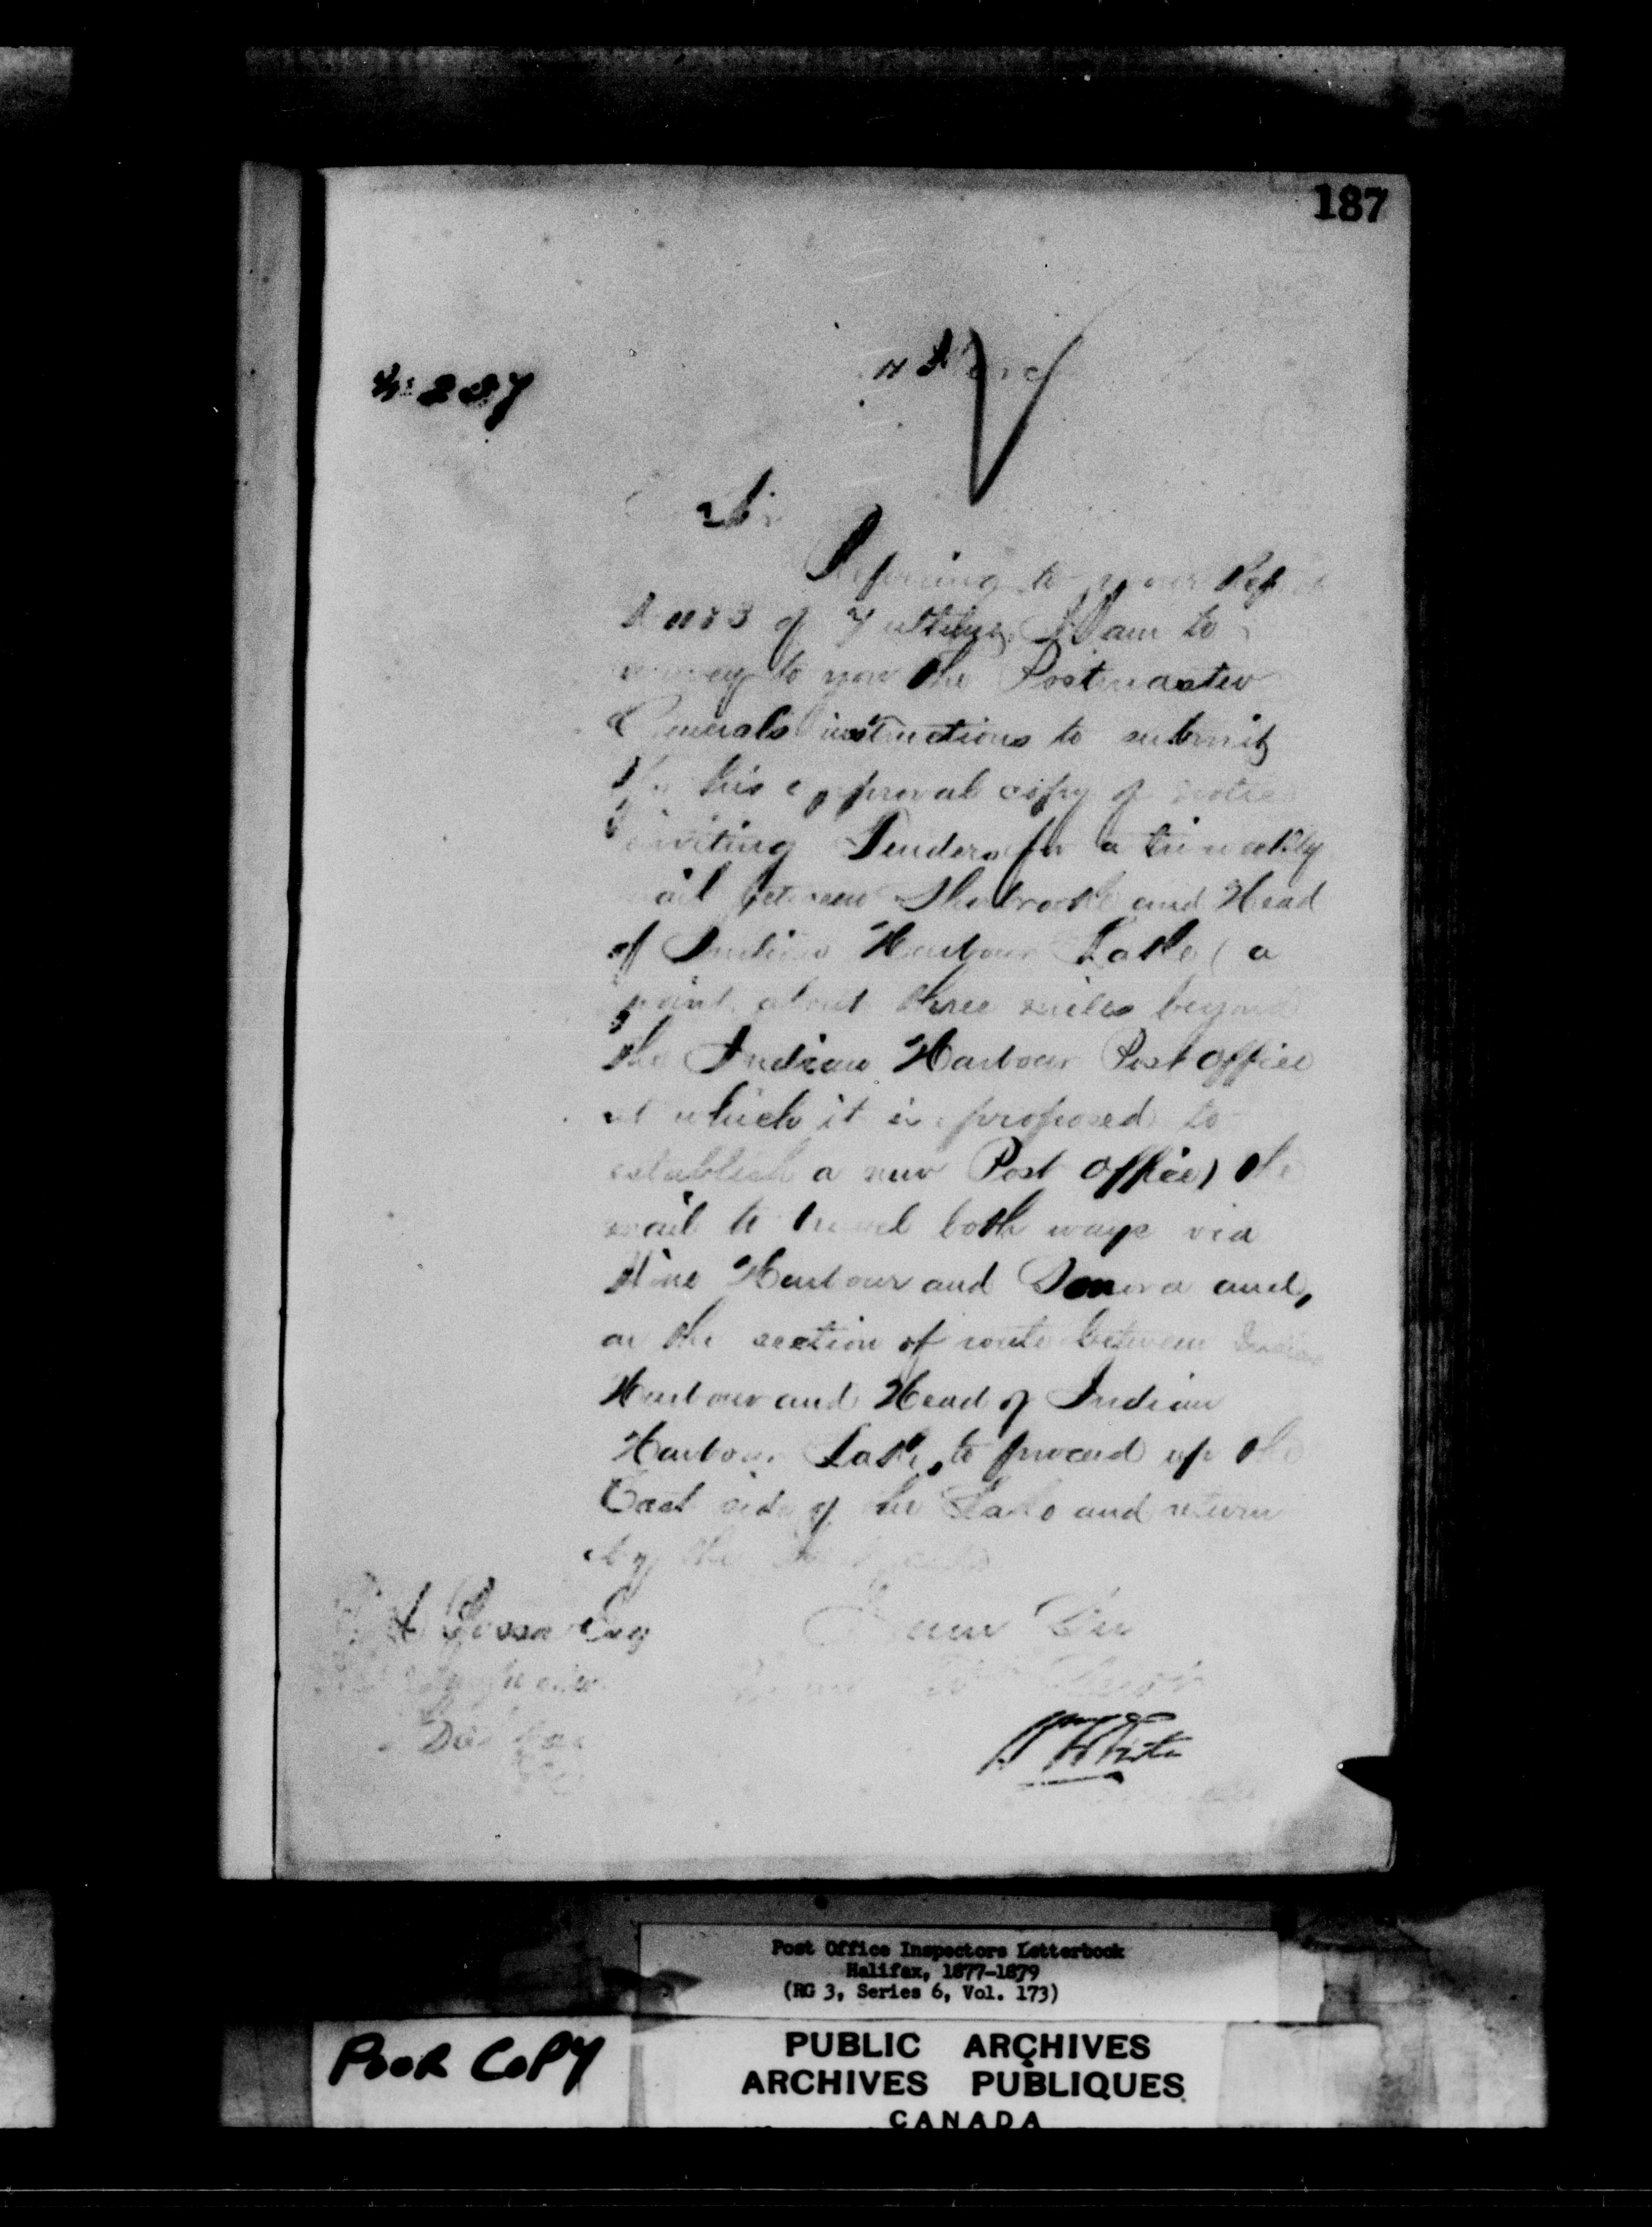 187
No 237
Sir
Referring to your Report
of 7 ultimo, I am to
convey to you the Postmaster
Generals instructions to submit
for his approval copy of notice
inviting Tenders for a tri weekly
mail between Sherbrooke and Head
of Indian Harbour Lake (a
point about three miles beyond
the Indian Harbour Post Office
at which it is proposed to
establish a new Post Office) the
mail to travel both ways via
Wine Harbour and Sonora and,
on the section of route between Indian
Harbour and Head of Indian
Harbour Lake, to proceed up the
East side of the Lake and return
by the
Esq
I am Sir
White
Post Office Inspectors Letterbook
Halifax, 1877-1879
(RG 3, Series 6, Vol. 173)
POOR COPY
PUBLIC ARCHIVES
ARCHIVES PUBLIQUES
CANADA